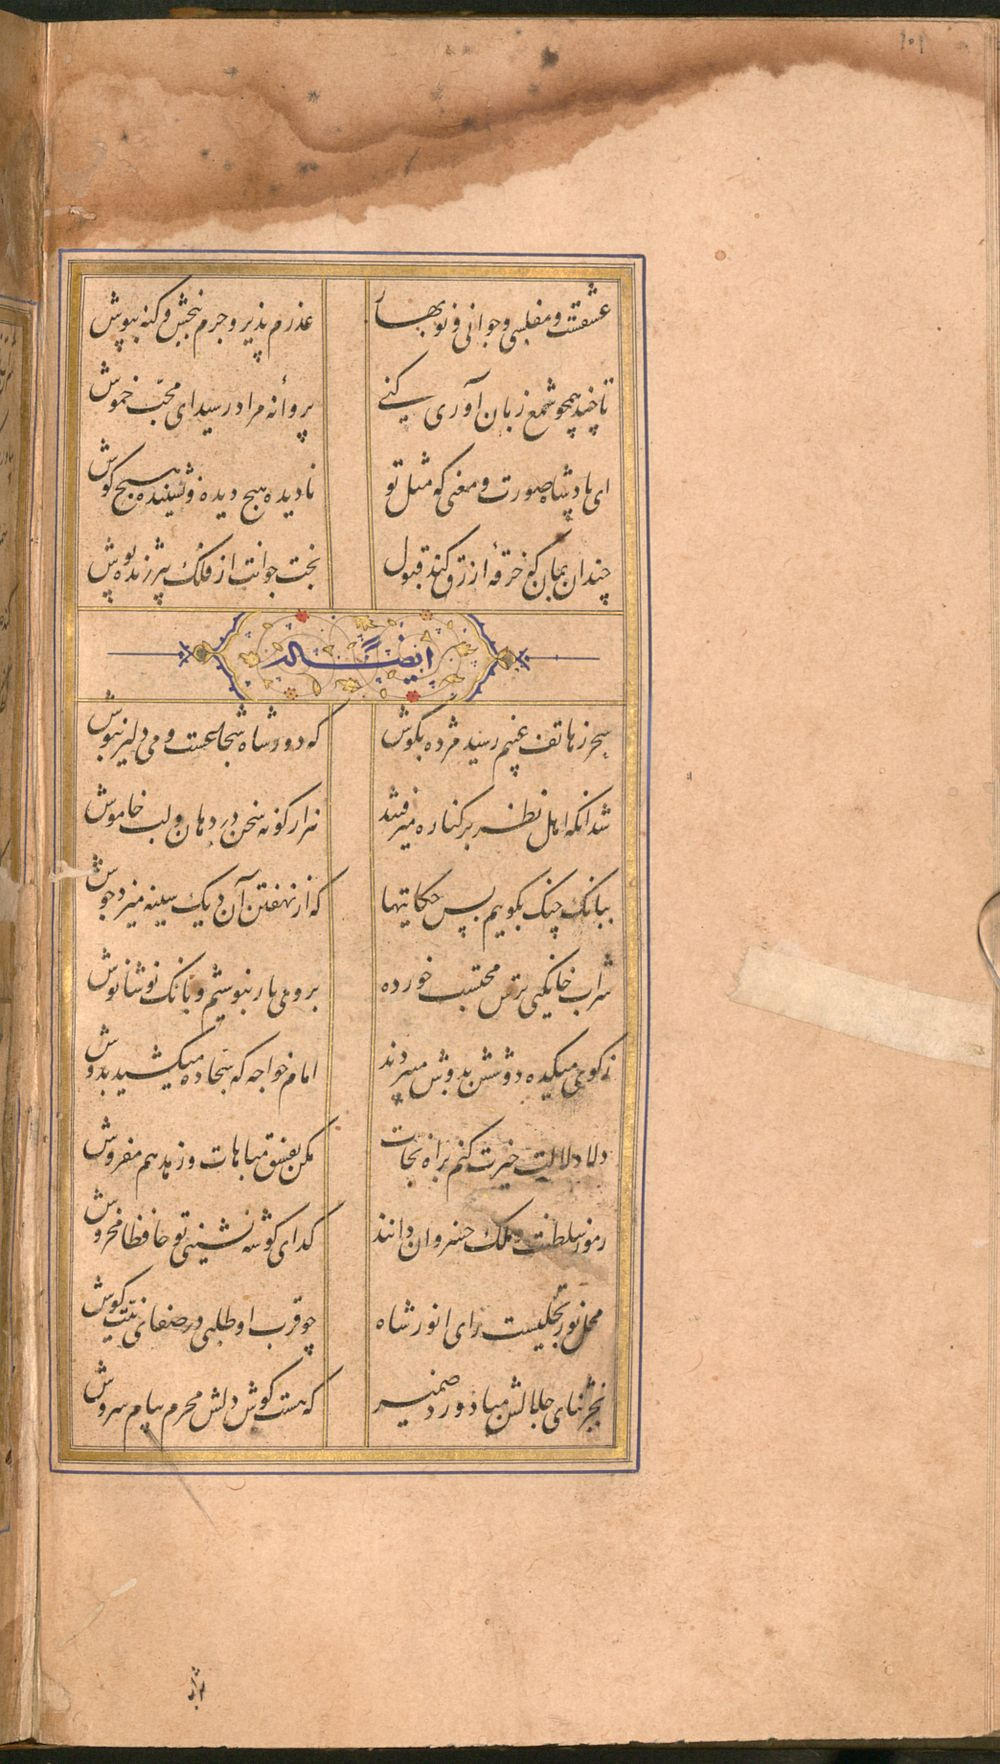 ۱۰۱
عشقست و مفلسی و جوانی و نوبهار عذرم پذیر و جرم ببخش و کنه بپوش
تا چند همچو شمع زبان آوری کنی پروانه مراد رسید ای محب خموش
ای پادشاه صورت و معنی که مثل تو نادیده هیچ دیده و نشنیده هیچ کوش
چندان بمان که خرقه ازرق کند قبول بخت جوانت از فلک پیر ژنده پوش
ایضا له
سحر ز هاتف غیبم رسید مژده بکوش که دور شاه شجاعست و می دلیر بنوش
شد انکه اهل نظر بر کناره میرفتند هزار کونه سخن در دهان و لب خاموش
ببانک چنک بکویم بس حکایتها که از نهفتن آن دیک سینه میزد جوش
شراب خانکیی ترس محتسب خورده بروی یار بنوشیم و بانک نوشانوش
ز کوی میکده دوشش بدوش میبردند امام خواجه که سجاده میکشید بدوش
دلا دلالت خیرت کنم براه نجات مکن بفسق مباهات و زهد هم مفروش
رموز سلطنت و ملک خسروان دانند کدای کوشه نشینی تو حافظا مخروش
محل نور تجلیست رای انور شاه چو قرب او طلبی در صفای نیت کوش
بجز ثنای جلالش مباد ورد ضمیر که هست کوش دلش محرم پیام سروش